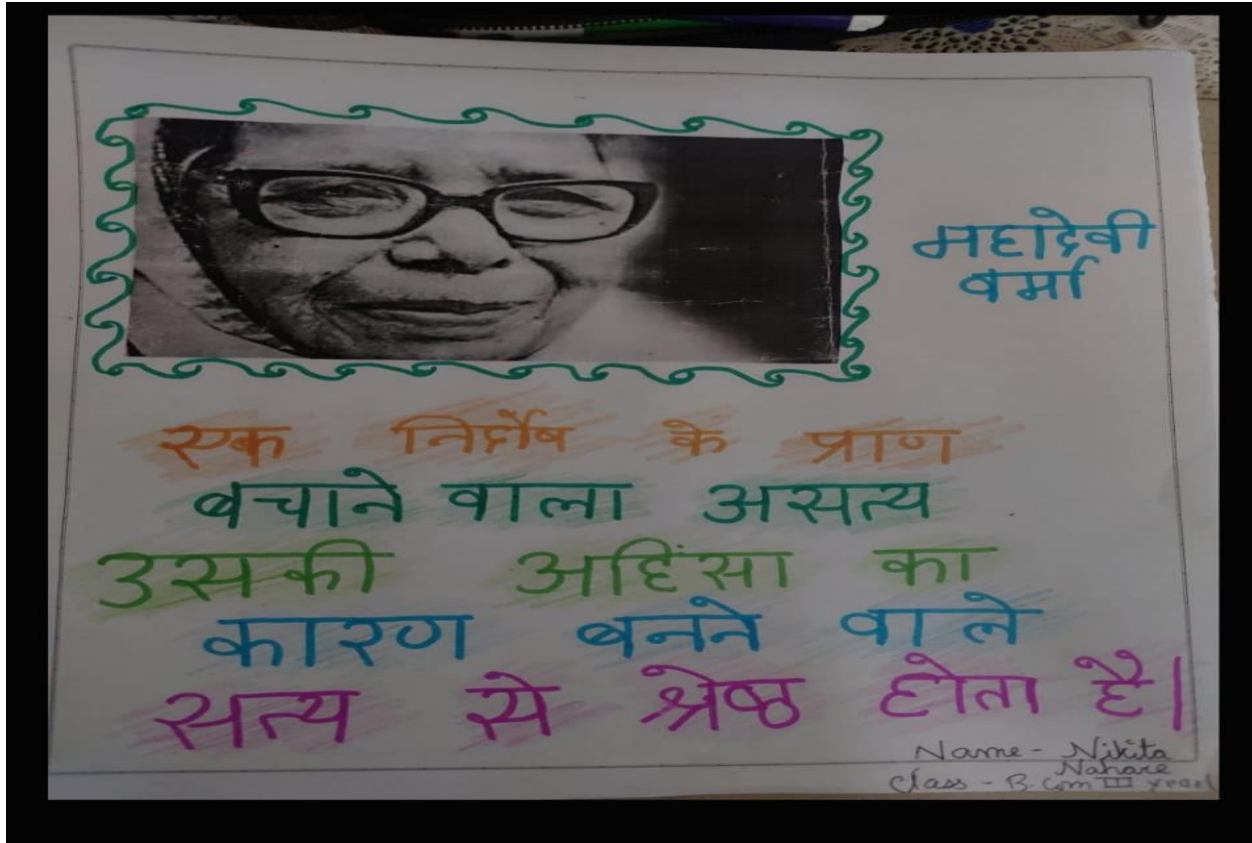 महादेवी
वर्मा
एक निर्दोष के प्राण
बचाने वाला असत्य
उसकी अहिंसा का
कारण बनने वाले
सत्य से श्रेष्ठ होता है।
Name - Nikita
Nahare
Class - B.Com III year